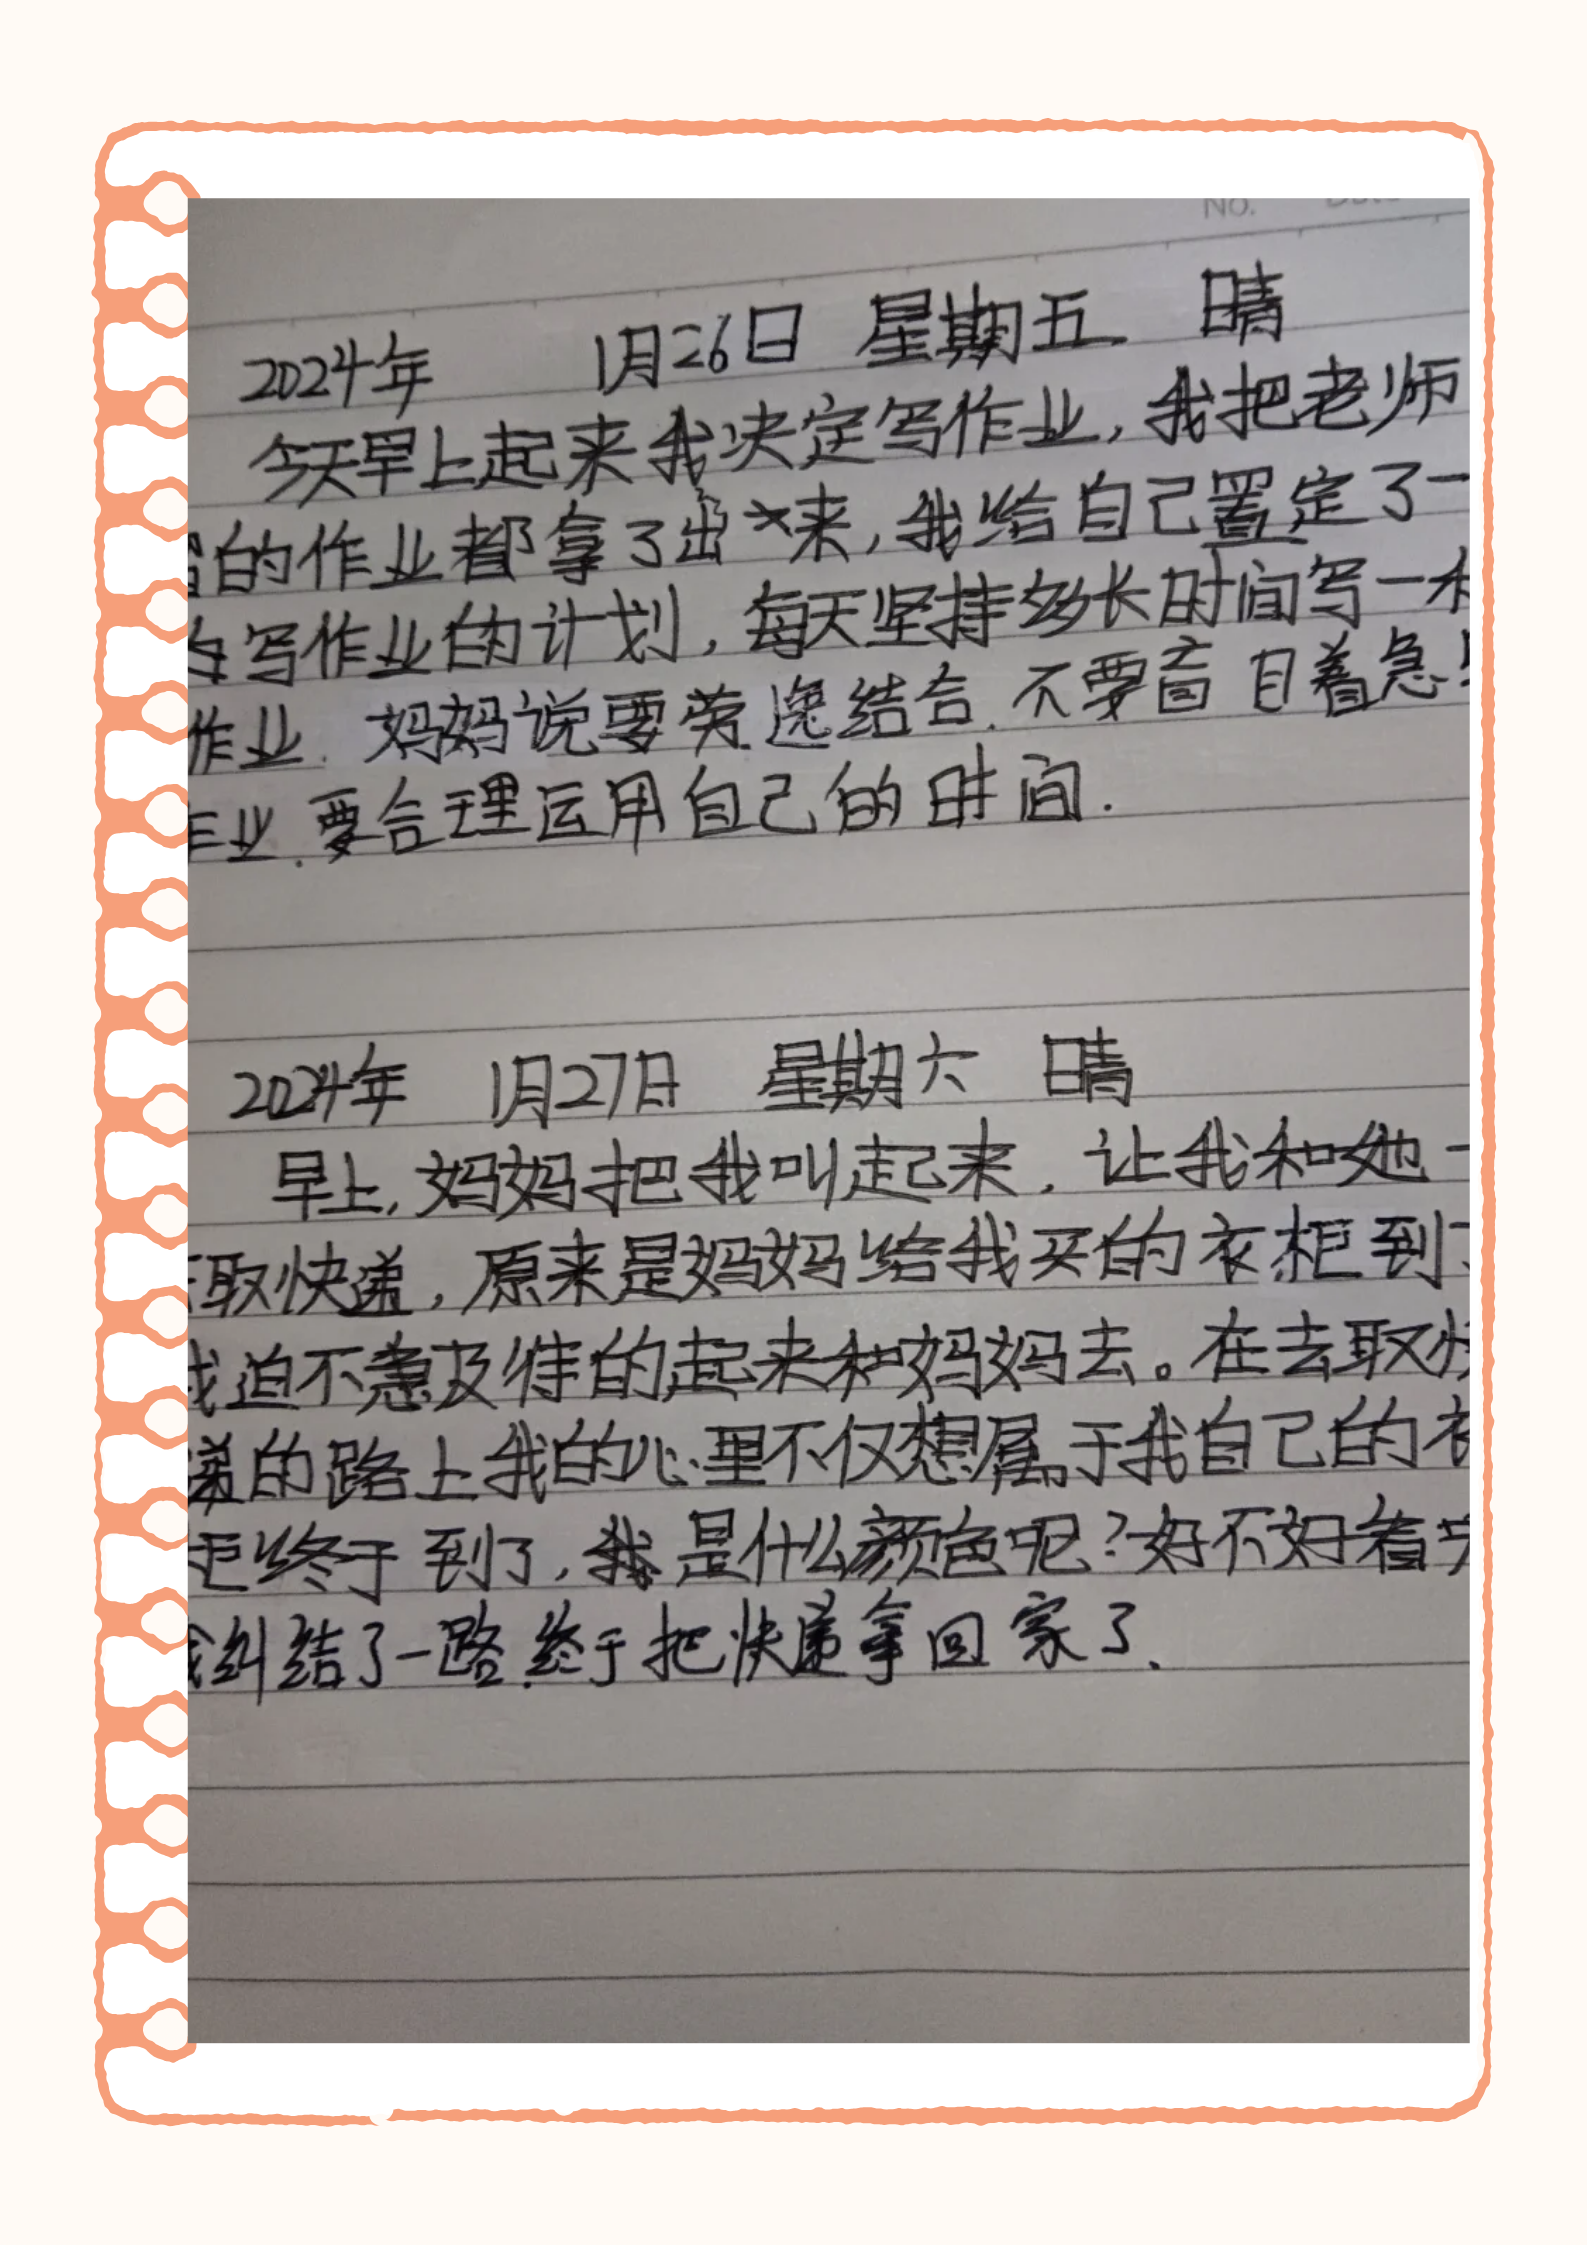 No.
2024年 1月26日 星期五. 晴
今天早上起来我决定写作业,我把老师
的作业都拿了出来,我给自己置定了一
写作业的计划,每天坚持多长时间写一
作业.妈妈说要劳逸结合.不要盲目着急
业.要合理运用自己的时间.
2024年 1月27日 星期六 晴
早上,妈妈把我叫起来.让我和她一
取快递,原来是妈妈给我买的衣柜到了
我迫不急及待的起来和妈妈去。在去取快
递的路上我的心里不仅想属于我自己的衣
柜终于到了,我是什么颜色呢?好不好看
我纠结了一路.终于把快递拿回家了.